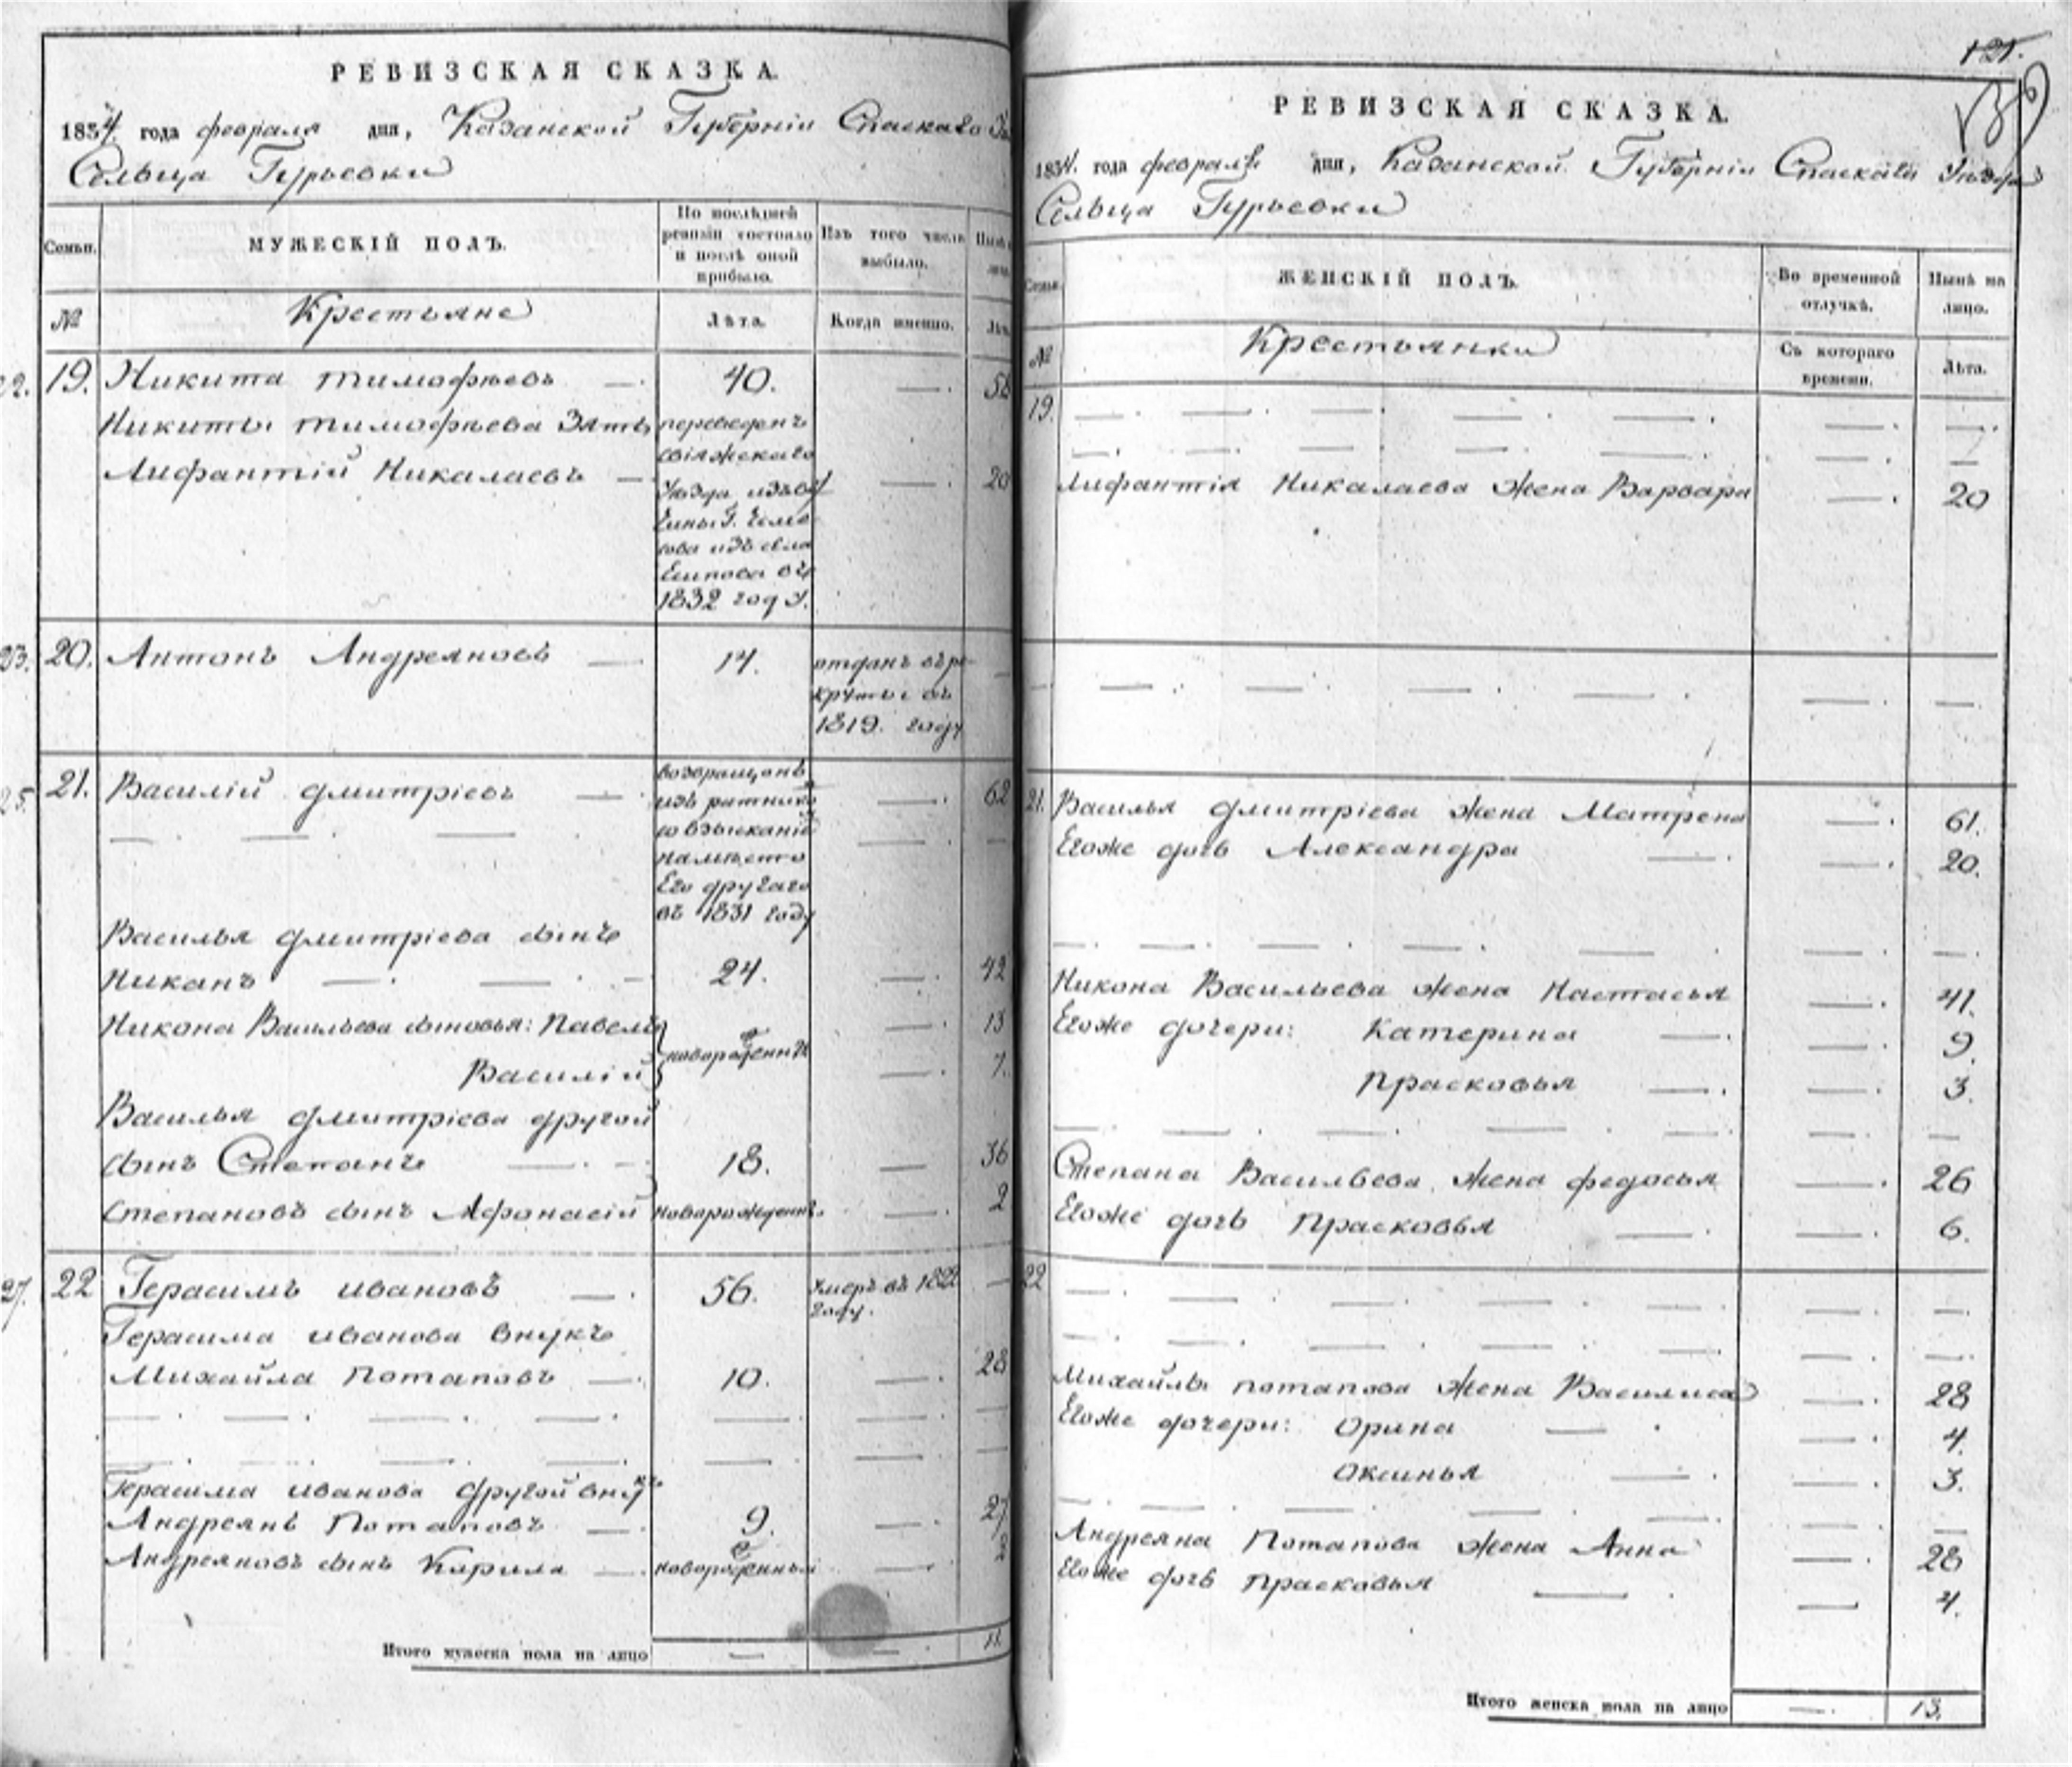 РЕВИЗСКАЯ СКАЗКА.
1834. года февраля дня, Казанской Губернiи Спаскаго
Сельца Гурьевки
Семьи.
МУЖЕСКIЙ ПОЛЪ.
По послѣдней ревизiи состояло и послѣ оной прибыло.
Изъ того числа выбыло.
№
Крестьяне
Лѣта.
Когда именно.
22. 19. Никита тимофѣевъ — 40. — 52
Никиты тимофѣева Зять переведенъ
свiяжскаго
Лифантiй Никалаевъ — — 20
Уѣзда изъ
изъ села
Есипова въ
1832 году.
23. 20. Антонъ Андреяновъ — 14. отданъ въ ре-
круты въ
1819. году
25. 21. Василiй дмитрiевъ — возвращонъ — 62
изъ ратниковъ
повзысканiю
намѣсто
Его другаго
въ 1831 году
Василья дмитрiева сынъ
Никанъ — 24. — 42
Никона Васильева сыновья: Павелъ новорожденныя — 13
Василiй — 7.
Василья дмитрiева другой
сынъ Степанъ — 18. — 36
Степановъ сынъ Афонасiй новорожденъ. — 2
27. 22 Герасимъ ивановъ — 56. Умеръ въ 1822 —
году.
Герасима иванова внукъ
Михайла потаповъ — 10. — 28
Герасима иванова другой внукъ
Андреянъ Потаповъ — 9. — 27
Андреяновъ сынъ Кирила — новорожденный — 2
Итого мужеска пола на лицо — — 11.
121.
РЕВИЗСКАЯ СКАЗКА.
1834. года февраля дня, Казанской Губернiи Спаскаго Уѣзда
Сельца Гурьевки
Семьи.
ЖЕНСКIЙ ПОЛЪ.
Во временной отлучкѣ.
Нынѣ на лицо.
№
Крестьянки
Съ котораго времени.
Лѣта.
19.
Лифантiя Никалаева жена Варвара — 20
21. Василья дмитрiева жена Матрена — 61.
Егоже дочь Александра — — 20.
Никона Васильева жена Настасья — 41.
Егоже дочери: Катерина — — 9.
Прасковья — — 3.
Степана Васильева жена федосья — 26
Егоже дочь Прасковья — — 6.
22
Михайлы потапова жена Василиса — 28
Егоже дочери: Орина — — 4.
Оксинья — — 3.
Андреяна Потапова жена Анна — 28
Егоже дочь Прасковья — — 4.
Итого женска пола на лицо — 13.